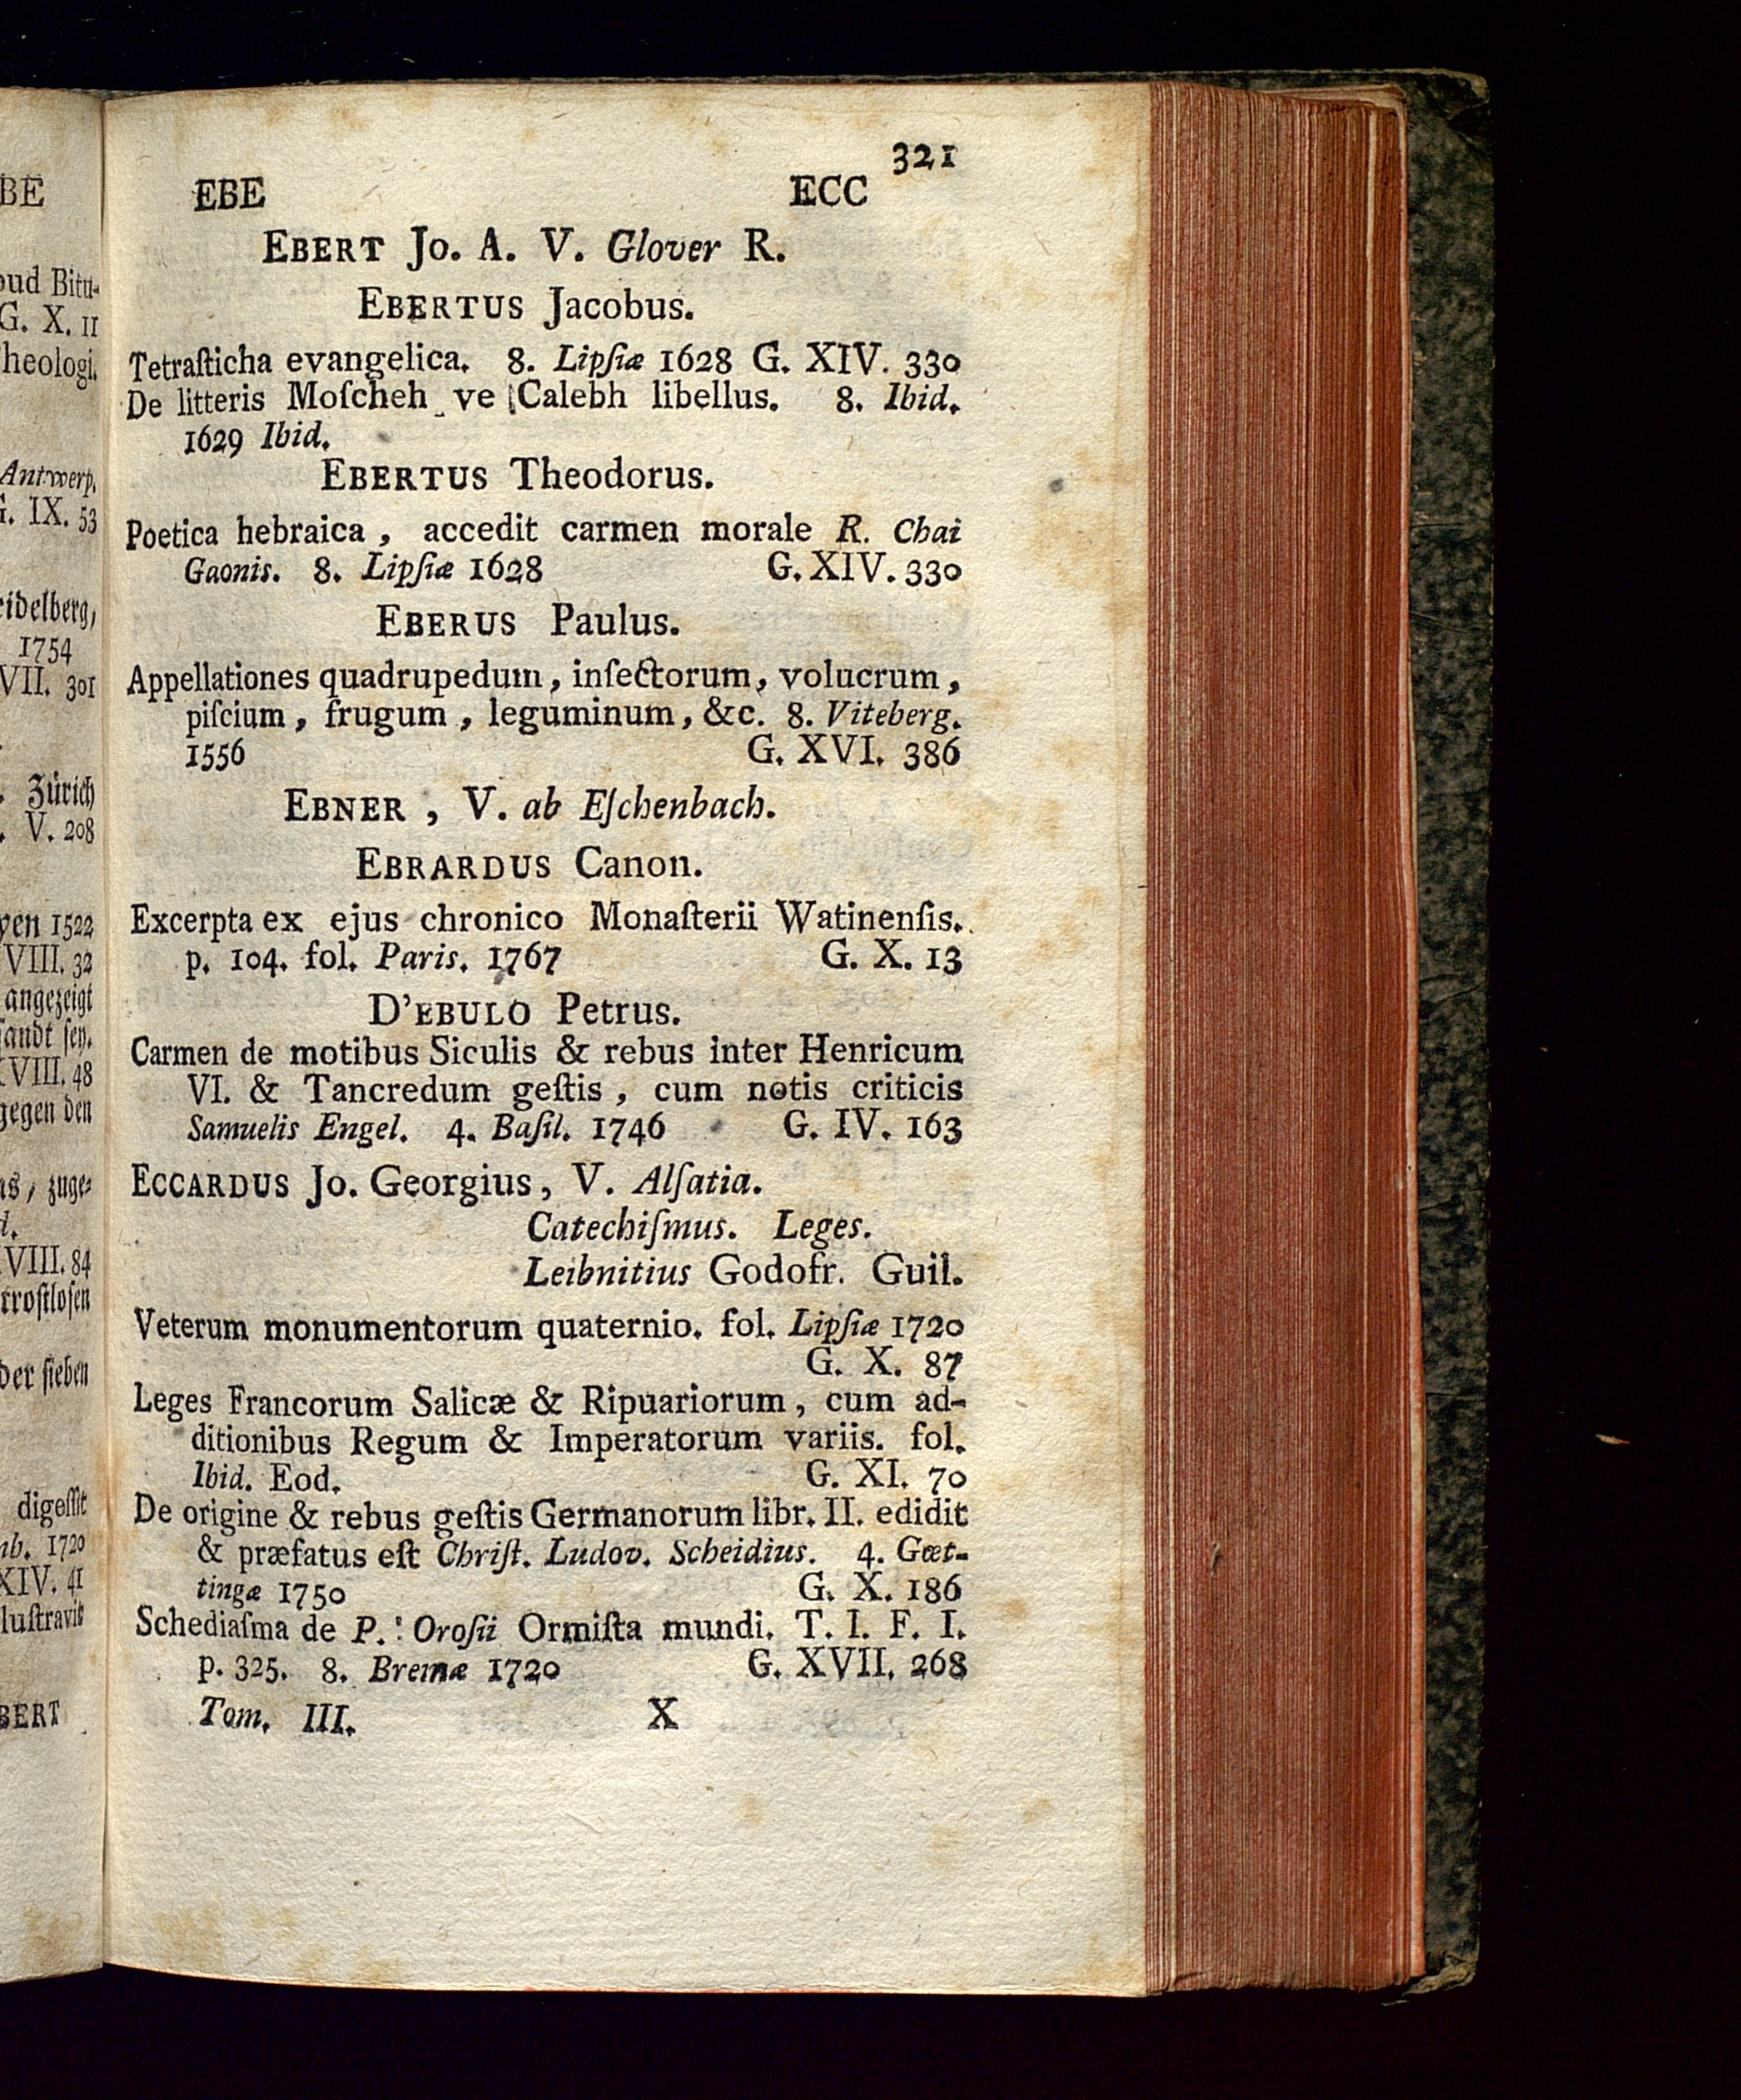 BE
oud Bitu-
G. X. 11
heologi.
Antwerp.
G. IX. 53
eidelberg,
1754
VII. 301
. Zürich
. V. 208
yen 1522
VIII. 32
angezeigt
sandt sey.
XVIII. 48
gegen den
ns, zuge-
d.
VIII. 84
trostlosen
der sieben
digessit
mb. 1720
XIV. 41
lustravit
BERT
321
EBE ECC
EBERT Jo. A. V. Glover R.
EBERTUS Jacobus.
Tetraſticha evangelica. 8. Lipſiæ 1628 G. XIV. 330
De litteris Moſcheh ve Calebh libellus. 8. Ibid.
1629 Ibid.
EBERTUS Theodorus.
Poetica hebraica, accedit carmen morale R. Chai
Gaonis. 8. Lipſiæ 1628 G. XIV. 330
EBERUS Paulus.
Appellationes quadrupedum, inſectorum, volucrum,
piſcium, frugum, leguminum, &c. 8. Viteberg.
1556 G. XVI. 386
EBNER, V. ab Eſchenbach.
EBRARDUS Canon.
Excerpta ex ejus chronico Monaſterii Watinenſis.
p. 104. fol. Paris. 1767 G. X. 13
D'EBULO Petrus.
Carmen de motibus Siculis & rebus inter Henricum
VI. & Tancredum geſtis, cum notis criticis
Samuelis Engel. 4. Baſil. 1746 G. IV. 163
ECCARDUS Jo. Georgius, V. Alſatia.
Catechiſmus. Leges.
Leibnitius Godofr. Guil.
Veterum monumentorum quaternio. fol. Lipſiæ 1720
G. X. 87
Leges Francorum Salicæ & Ripuariorum, cum ad-
ditionibus Regum & Imperatorum variis. fol.
Ibid. Eod. G. XI. 70
De origine & rebus geſtis Germanorum libr. II. edidit
& præfatus eſt Chriſt. Ludov. Scheidius. 4. Gœt-
tingæ 1750 G. X. 186
Schediaſma de P. Oroſii Ormiſta mundi. T. I. F. I.
p. 325. 8. Bremæ 1720 G. XVII. 268
Tom. III. X